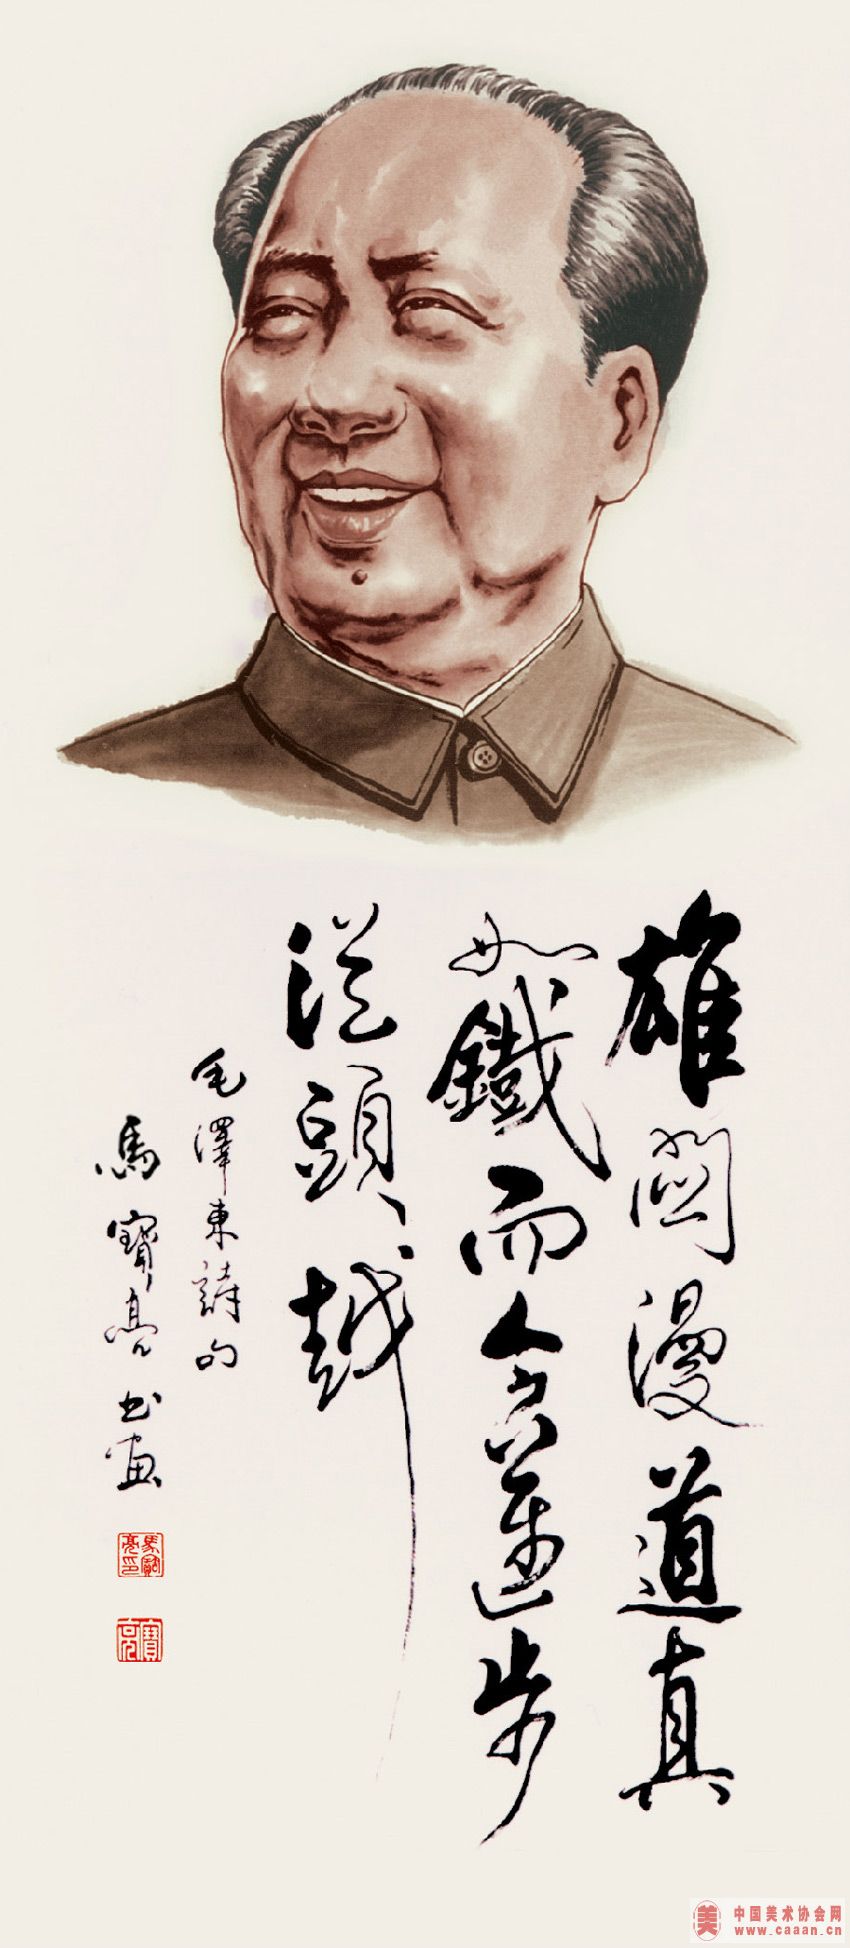 雄関漫道真
如鐵而今邁步
從頭越
毛澤東詩句
馬寶亮书畫
馬寶亮印
寶亮
中国美术协会网
www.caaan.cn